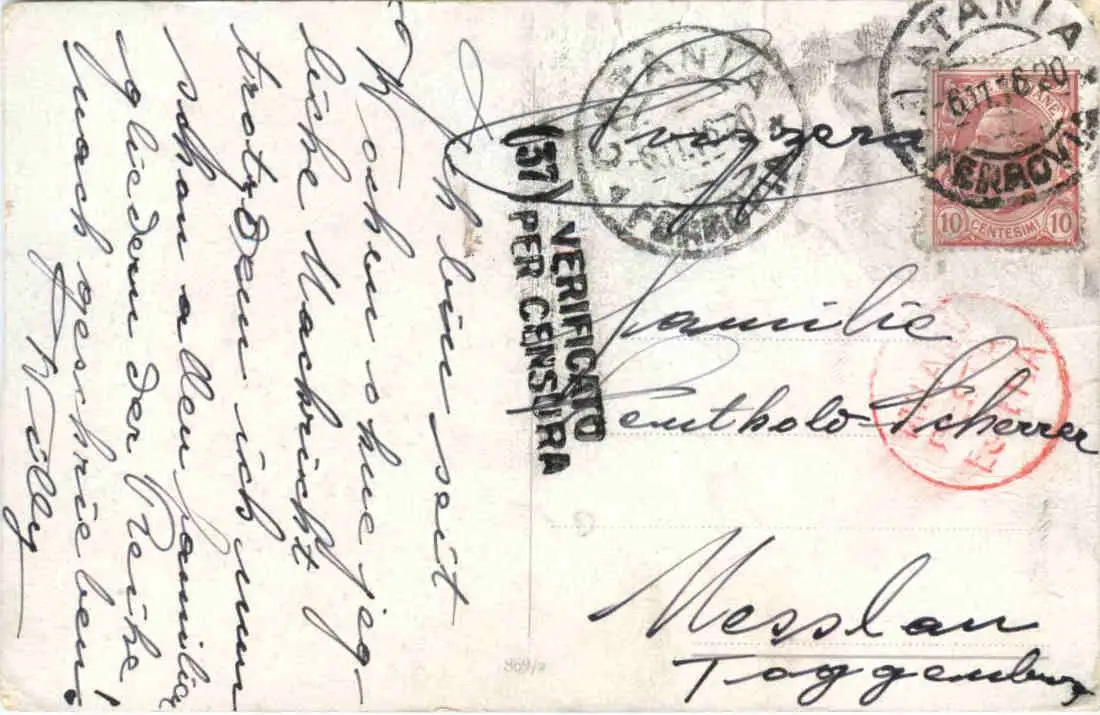 Ich bin seit
Wochen ohne jeg-
liche Nachricht
trotzdem ich nun
schon allen Familien
gliedern der Reihe
nach geschrieben!
Willy
VERIFICATO
(37) PER CENSURA
CATANIA
FERROVIA
CATANIA
FERROVIA
10 CENTESIMI 10
Svizzera
Familie
Leuthold-Scherrer
Nesslau
Toggenburg
369/2